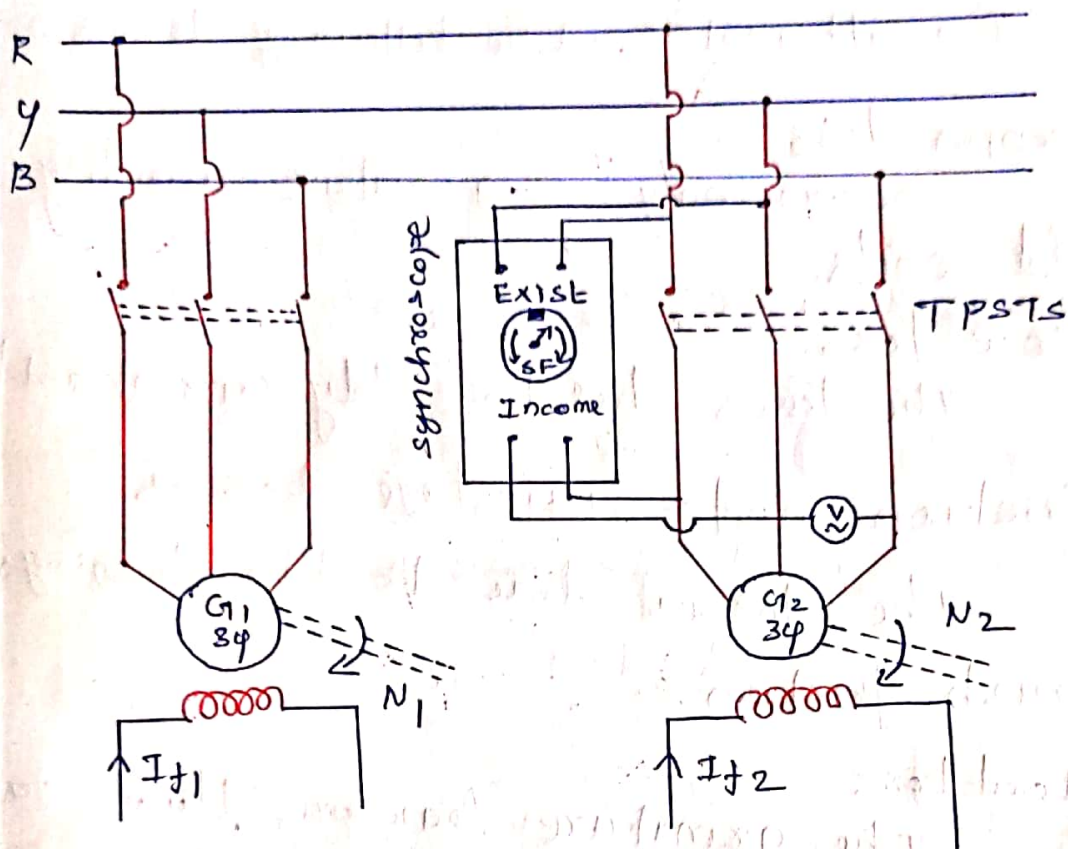 R
Y
B
synchroscope
EXISt
SF
Income
TPSTS
V
G1
3φ
N1
G2
3φ
N2
If1
If2